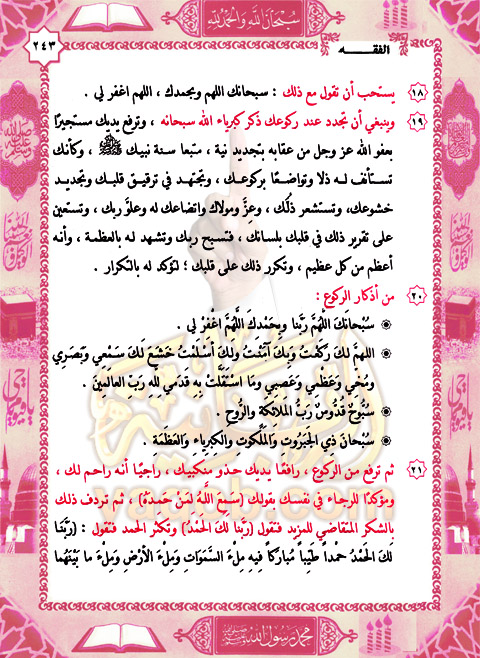 سُبْحَانَ اللَّهِ وَالْحَمْدُ لِلَّهِ
الفقـــه
٢٤٣
١٨ يستحب أن تقول مع ذلك : سبحانك اللهم وبحمدك ، اللهم اغفر لي .
١٩ وينبغي أن تجدد عند ركوعك ذكر كبرياء الله سبحانه ، وترفع يديك مستجيرًا
بعفو الله عز وجل من عقابه بتجديد نية ، متبعا سنة نبيك ﷺ ، وكأنك
تستأنف لـه ذلا وتواضعًـا بركوعـك ، وتجتهـد في ترقيـق قلبـك وتجديـد
خشوعك، وتستشعر ذلَّك ، وعِزَّ ومولاك واتضاعك له وعلوَّ ربك ، وتستعين
على تقرير ذلك في قلبك بلسانك ، فتسبح ربك وتشهد لـه بالعظمـة ، وأنـه
أعظم من كل عظيم ، وتكرر ذلك على قلبك ؛ لتؤكد له بالتكرار .
٢٠ من أذكار الركوع :
سُبْحَانَكَ اللَّهُمَّ رَبَّنا وبِحَمْدِكَ اللَّهُمَّ اغْفِرْ لي .
اللهمَّ لكَ رَكَعْتُ وَبِكَ آمَنْتُ ولكَ أسْلَمْتُ خَشَعَ لَكَ سَمْعي وَبَصَرِي
ومُخِّي وَعَظْمِي وَعَصَبِي ومَا اسْتَقَلَّتْ بِهِ قَدَمَي لِلهِ رَبِّ العالَمِينَ .
سُبُّوحٌ قُدُّوسٌ رَبُّ المَلَائِكَةِ والرُّوحِ .
سُبْحانَ ذِي الجَبَرُوتِ وَالمَلَكوتِ والكِبرِياءِ وَالعَظَمَةِ .
٢١ ثم ترفع من الركوع ، رافعًا يديك حذو منكبيك ، راجيًا أنه راحم لك ،
ومؤكدًا للرجاء في نفسك بقولك (سَمِعَ اللَّهُ لِمَنْ حَمِدَهُ) ، ثم تردف ذلك
بالشكر المتقاضي للمزيد فتقول (رَبَّنا لكَ الحَمْدُ) وتكثر الحمد فتقول : (رَبَّنَا
لكَ الحَمْدُ حمْداً طَيِّباً مُبارَكاً فِيهِ مِلْءَ السَّمَوَاتِ وَمِلْءَ الأَرْضِ وَمِلْءَ ما بَيْنَهُما
محمد رسول الله ﷺ